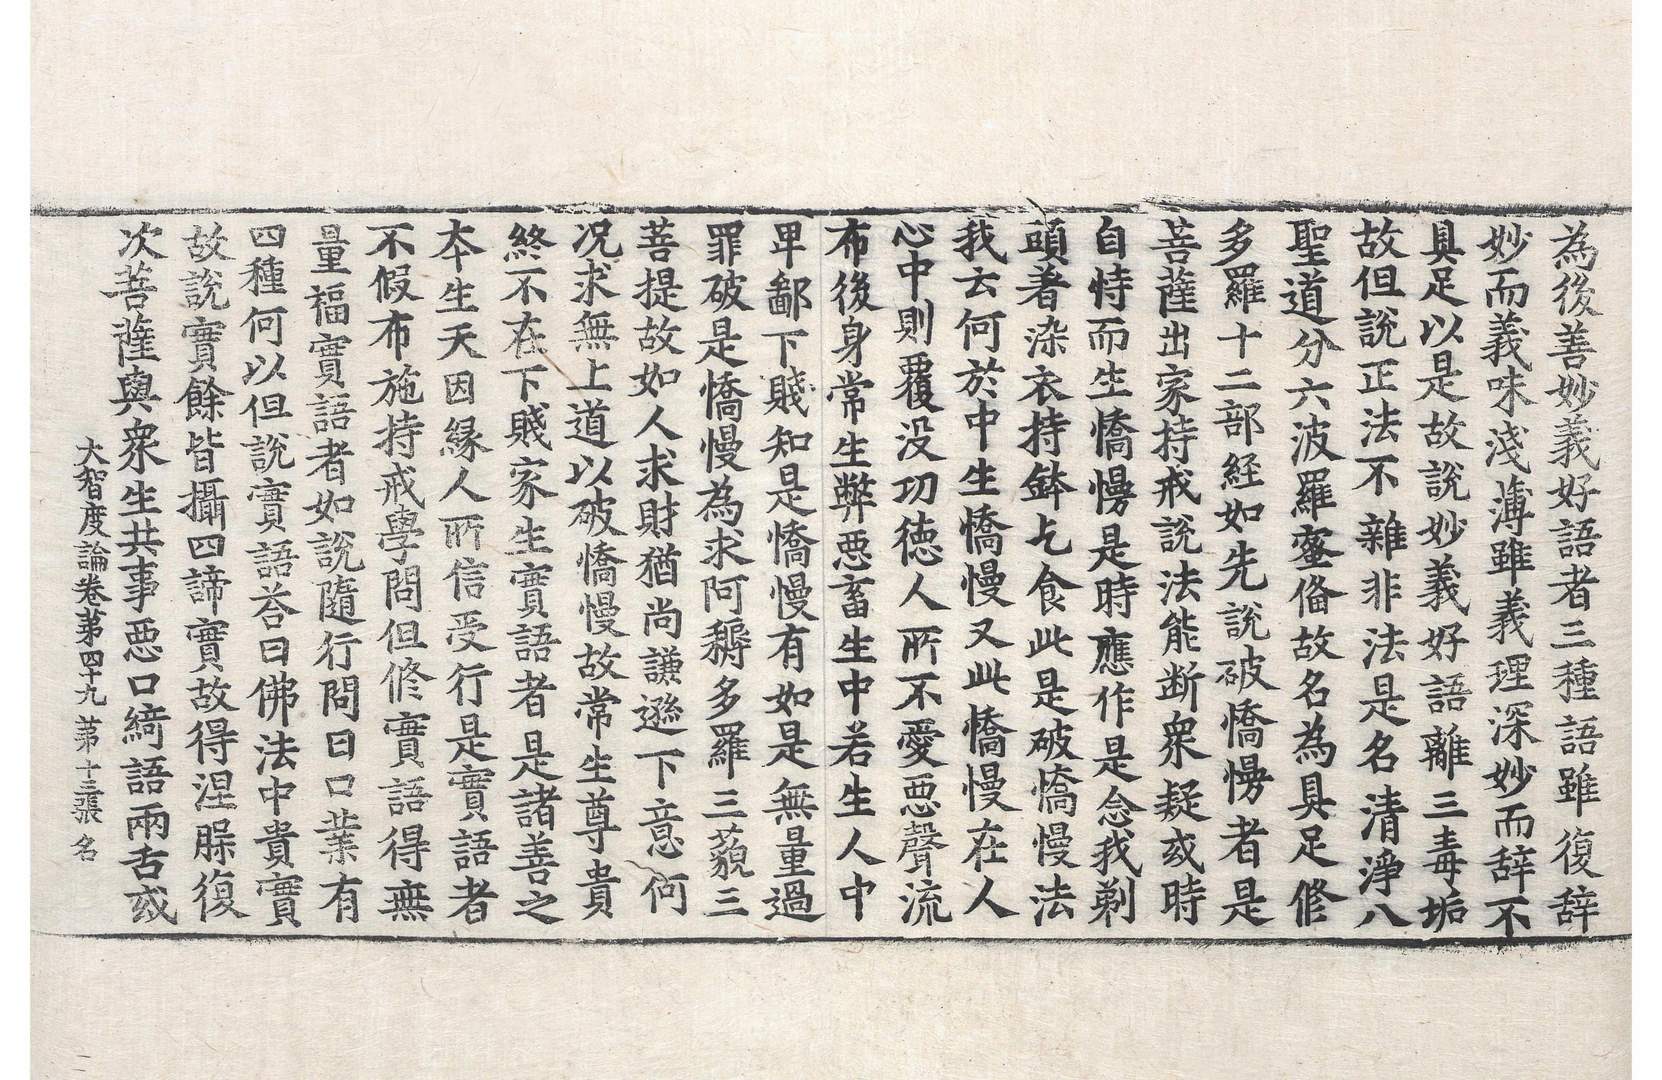 為後善妙義好語者三種語雖復辞
妙而義味淺薄雖義理深妙而辞不
具足以是故說妙義好語離三毒垢
故但說正法不雜非法是名清淨八
聖道分六波羅蜜俻故名為具足修
多羅十二部經如先說破憍慢者是
菩薩出家持戒說法能断衆疑或時
自恃而生憍慢是時應作是念我剃
頭著染衣持鉢乞食此是破憍慢法
我云何於中生憍慢又此憍慢在人
心中則覆没功德人所不愛惡聲流
布後身常生弊惡畜生中若生人中
卑鄙下賤知是憍慢有如是無量過
罪破是憍慢為求阿耨多羅三藐三
菩提故如人求財猶尚謙遜下意何
况求無上道以破憍慢故常生尊貴
終不在下賤家生實語者是諸善之
本生天因緣人所信受行是實語者
不假布施持戒學問但修實語得無
量福實語者如說隨行問曰口業有
四種何以但說實語荅曰佛法中貴實
故說實餘皆攝四諦實故得涅槃復
次菩薩與衆生共事惡口綺語兩舌或
大智度論卷苐四十九 苐十三張 名